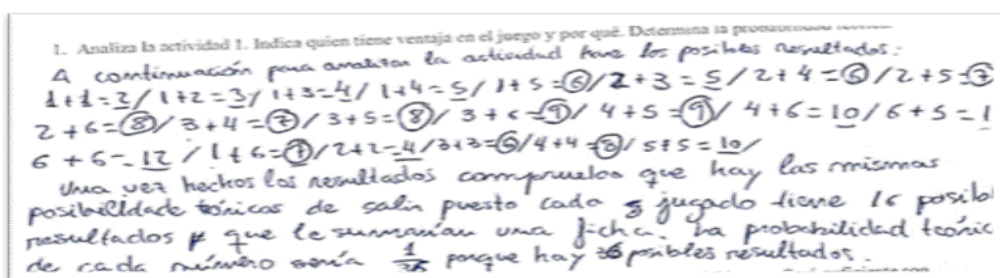 1. Analiza la actividad 1. Indica quien tiene ventaja en el juego y por qué. Determina la probabilidad
A continuación para analizar la actividad haré los posibles resultados:
1+1=2/ 1+2=3/ 1+3=4/ 1+4=5/ 1+5=6/ 2+3=5/ 2+4=6/ 2+5=7
2+6=8/ 3+4=7/ 3+5=8/ 3+6=9/ 4+5=9/ 4+6=10/ 6+5=1
6+6=12/ 1+6=7/ 2+2=4/ 3+3=6/ 4+4=8/ 5+5=10/
Una vez hechos los resultados compruebo que hay las mismas
de salir puesto cada jugado tiene posibl
resultados que le sumarían una ficha. La probabilidad teóric
de cada número sería porque hay posibles resultados.